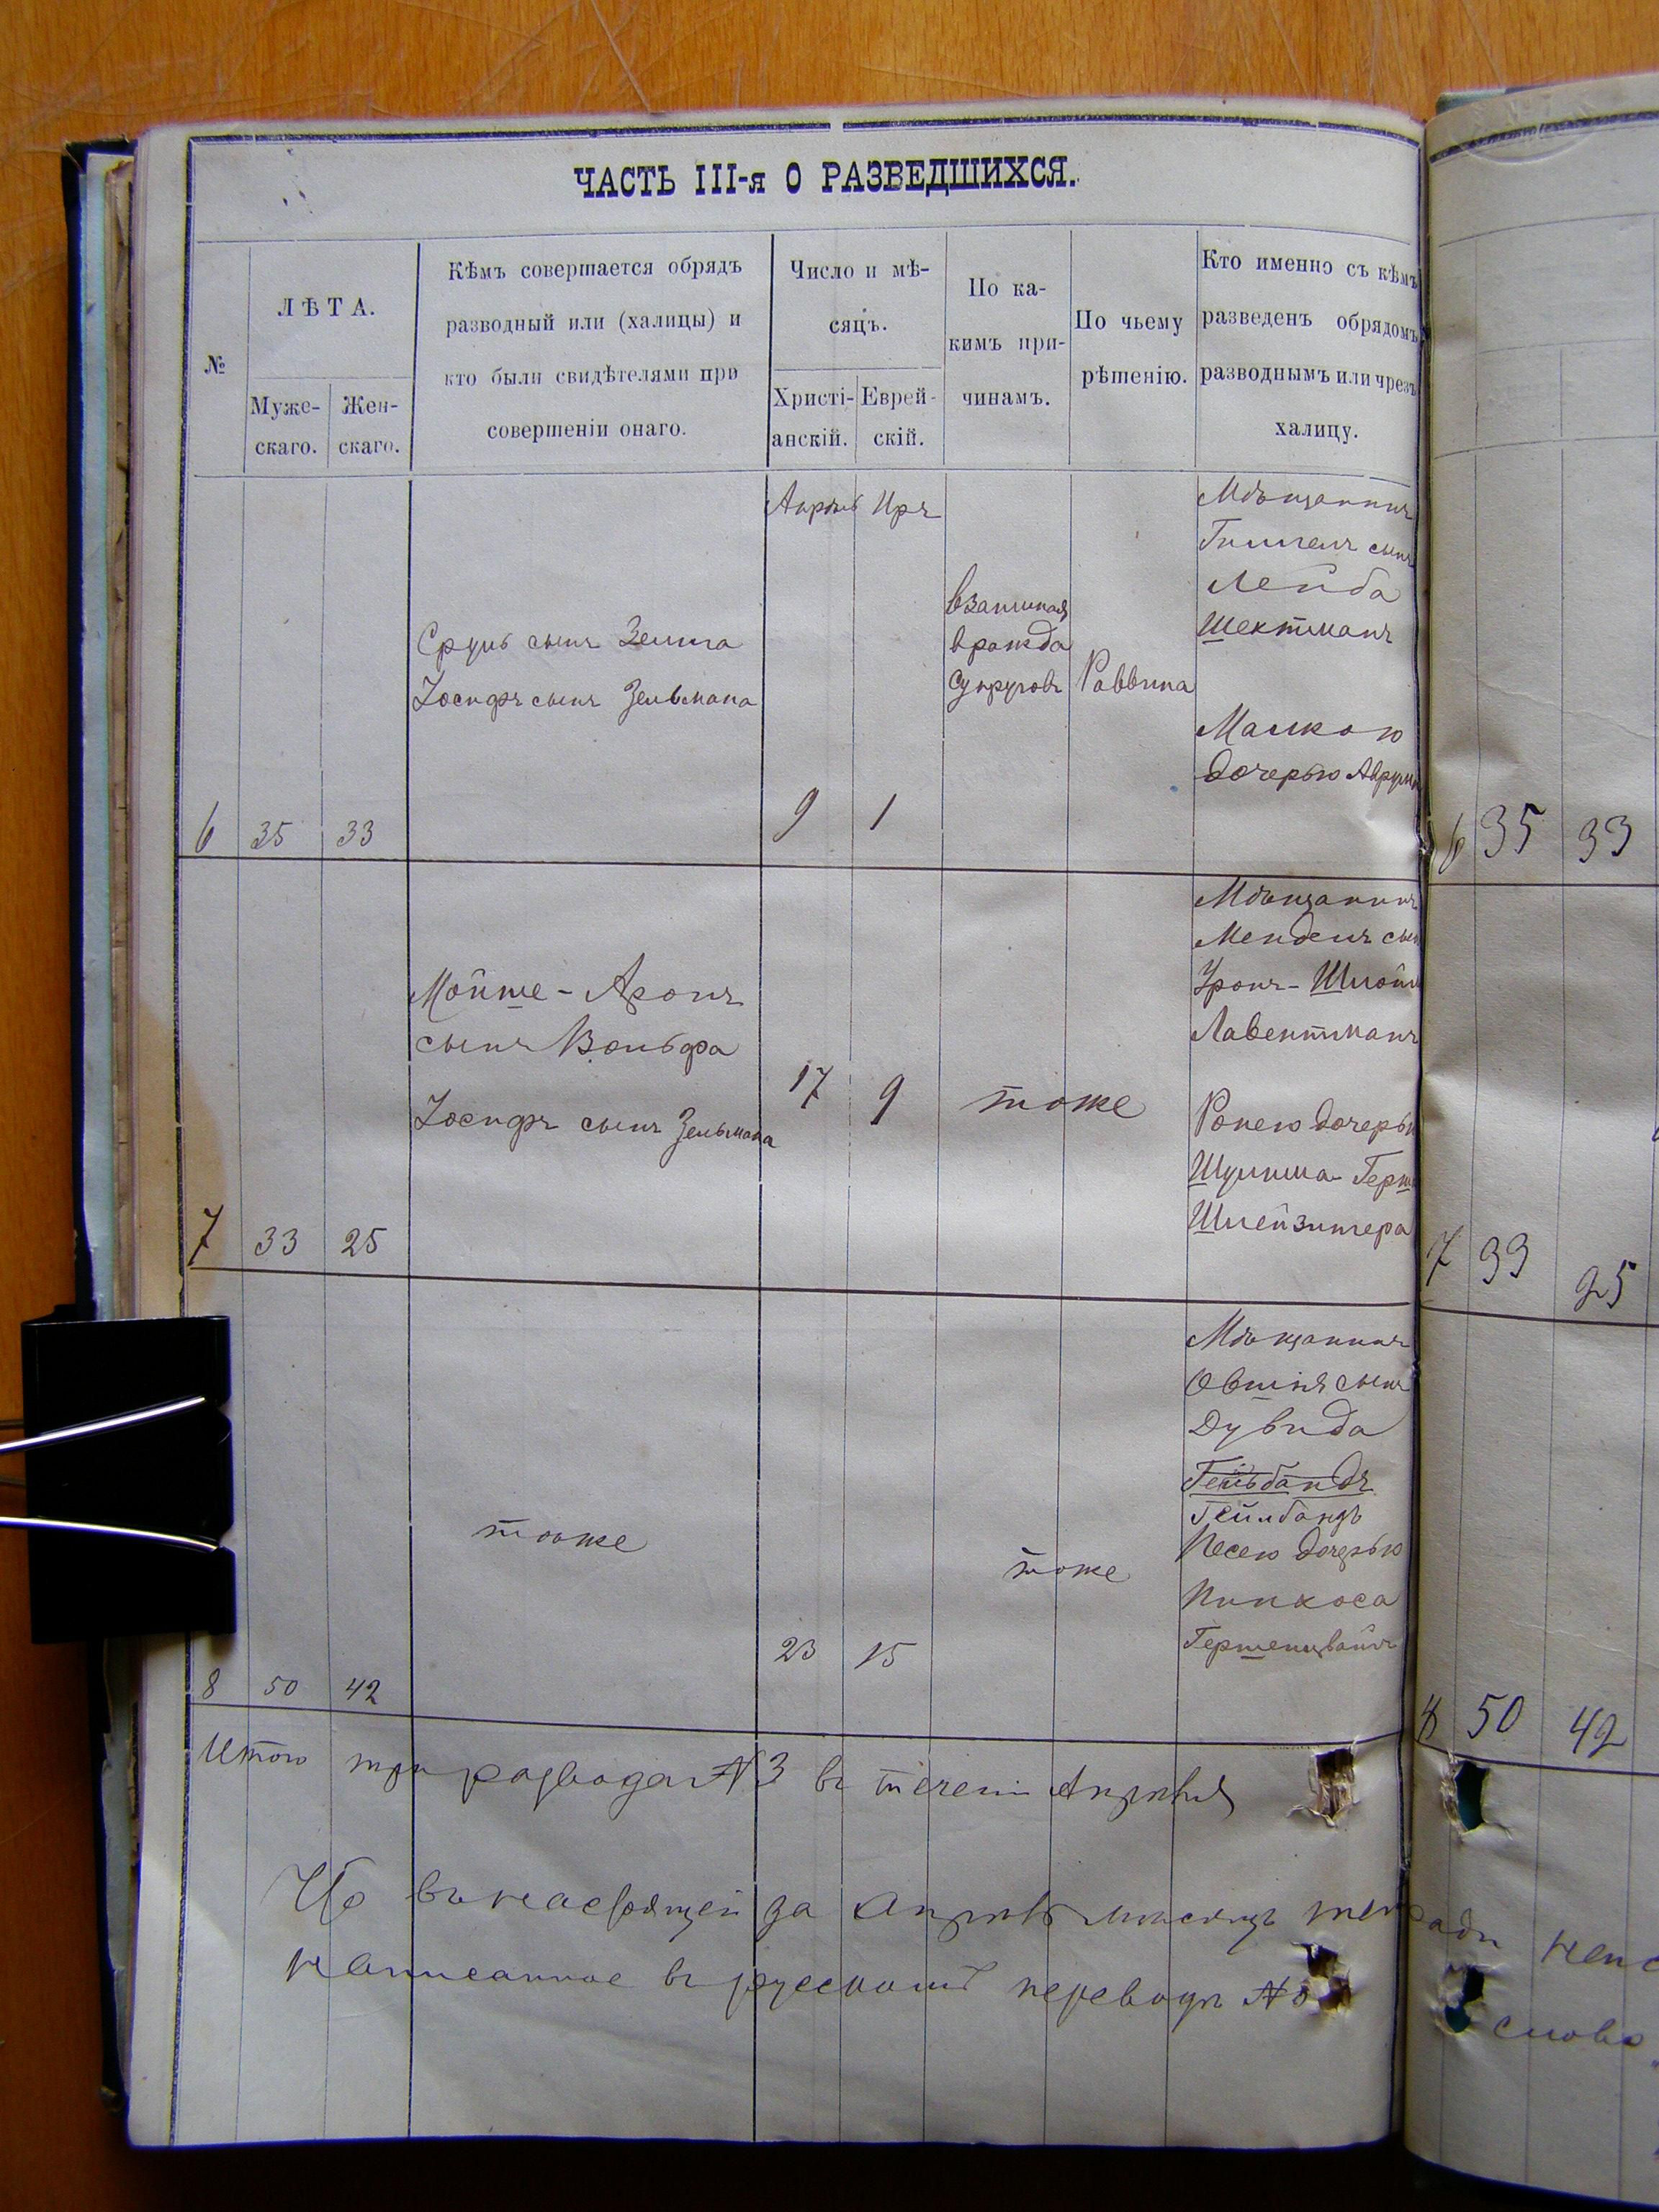 ЧАСТЬ III-я О РАЗВЕДШИХСЯ.
№
ЛѢТА.
Муже-
скаго.
Жен-
скаго.
Кѣмъ совершается обрядъ
разводный или (халицы) и
кто были свидѣтелями при
совершеніи онаго.
Число и мѣ-
сяцъ.
Христі-
анскій.
Еврей-
скій.
По ка-
кимъ при-
чинамъ.
По чьему
рѣшенію.
Кто именно съ кѣмъ
разведенъ обрядомъ
разводнымъ или чрезъ
халицу.
6
35
33
Сруль сынъ Зелига
Іосифъ сынъ Зельмана
Апрѣль
Иръ
9
1
взаимная
вражда
супруговъ
Раввина
Мѣщанинъ
сынъ
Лейба
Шехтманъ
Малкою
дочерью
7
33
25
Мойше-Аронъ
сынъ Вольфа
Іосифъ сынъ Зельмана
17
9
тоже
Мѣщанинъ
Мендель сынъ
Лавентманъ
дочерью
8
50
42
тоже
23
15
тоже
Мѣщанинъ
Овшія сынъ
Дувида
Гельбандъ
Гейлбандъ
Песею дочерью
Пинкоса
Итого три развода № 3 въ теченіи Апрѣля
Что въ настоящей за Апрѣль мѣсяцъ тетради
написанное въ русскомъ переводѣ
слово
6
35
33
7
33
25
8
50
42